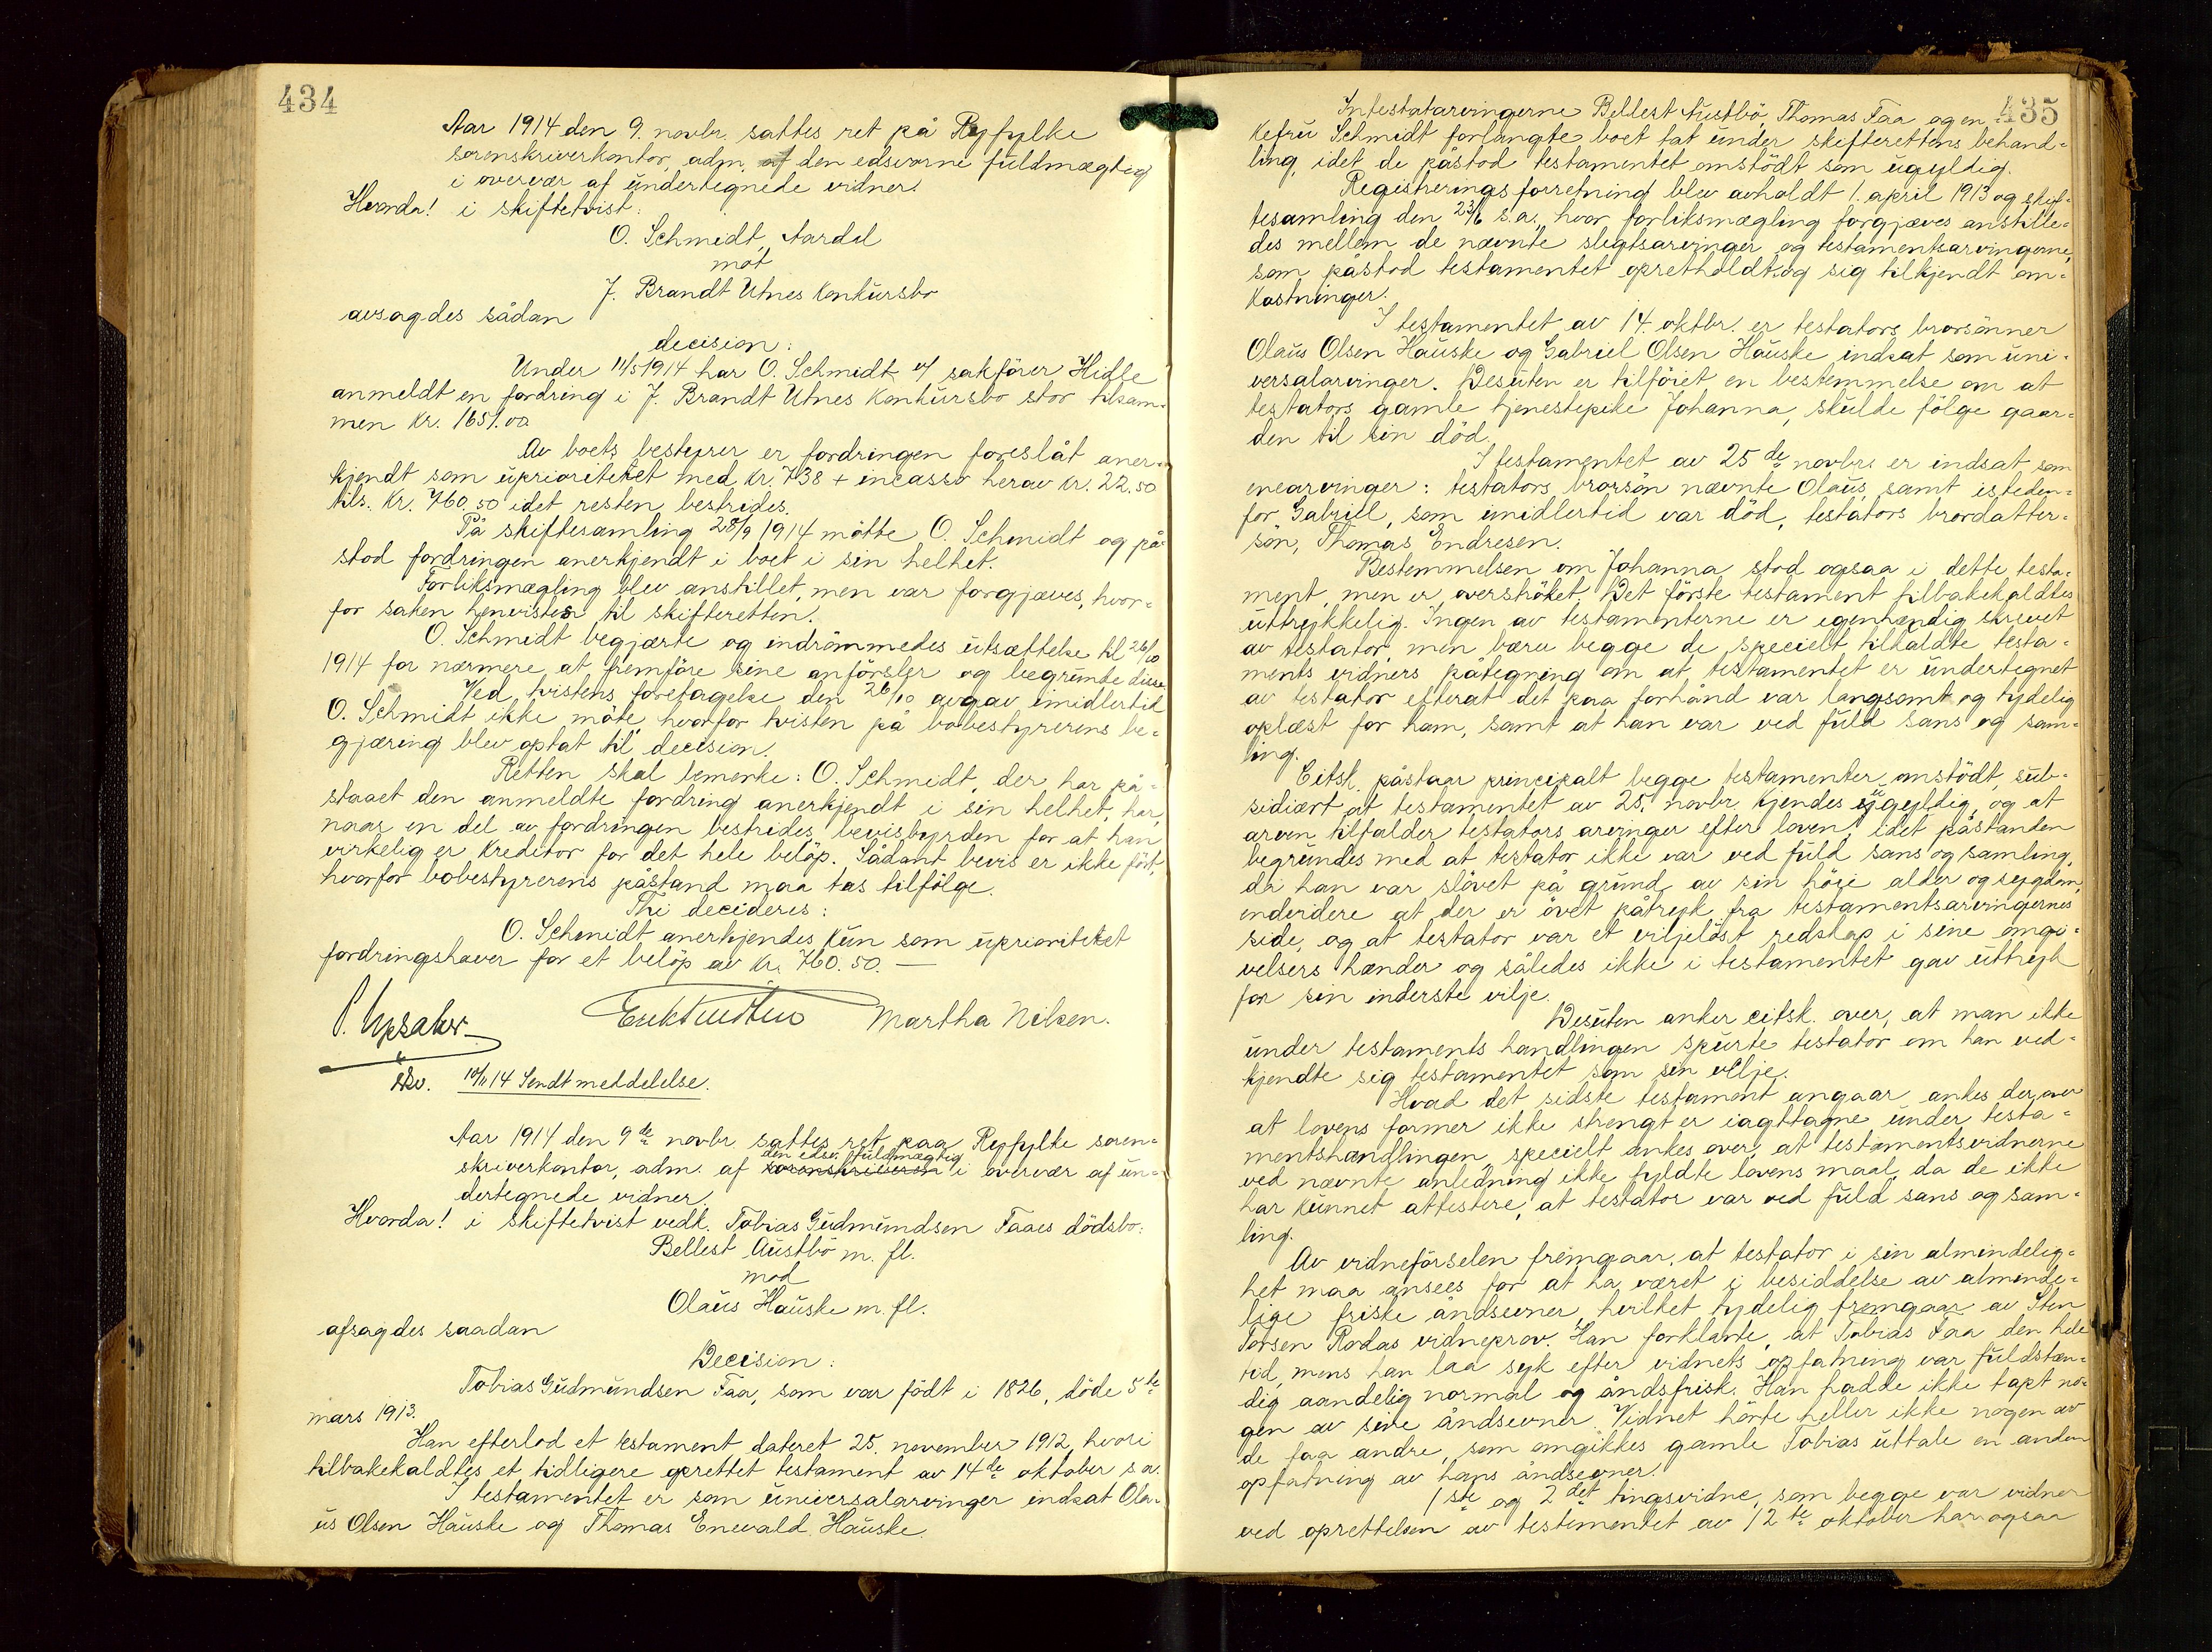 434
Aar 1914 den 9. novbr. sattes ret på Ryfylke
sorenskriverkontor, adm. af den edsvorne fuldmægtig
i overvær af undertegnede vidner.
Hvorda! i skiftetvist:
O. Schmidt, Aardal
mot
J. Brandt Utnes konkursbo
avsagdes sådan
decision:
Under 11/5 1914 har O. Schmidt v/ sakförer Hidle
anmeldt en fordring i J. Brandt Utnes konkursbo stor tilsam-
men kr. 1651.00
Av boets bestyrer er fordringen foreslåt aner-
kjendt som uprioritetet med kr. 738 + incasso herav kr. 22.50
tils. kr. 760.50 idet resten bestrides.
På skiftesamling 28/9 1914 mötte O. Schmidt og på-
stod fordringen anerkjendt i boet i sin helhet.
Forliksmægling blev anstillet, men var forgjæves, hvor-
for saken henvistes til skifteretten.
O. Schmidt begjærte og indrömmedes utsættelse til 26/10
1914 for nærmere at fremföre sine anförsler og begrunde disse
Ved tvistens foretagelse den 26/10 avgav imidlertid
O. Schmidt ikke möte hvorfor tvisten på bobestyrerens be-
gjæring blev optat til decision.
Retten skal bemerke: O. Schmidt, der har på-
staaet den anmeldte fordring anerkjendt i sin helhet, har,
naar en del av fordringen bestrides, bevisbyrden for at han
virkelig er kreditor for det hele belöp. Sådant bevis er ikke fört,
hvorfor bobestyrerens påstand maa tas tilfölge.
Thi decideres:
O. Schmidt anerkjendes kun som uprioritetet
fordringshaver for et belöp av kr. 760.50. —
Martha Nilsen.
10/11 14 Sendt meddelelse.
Aar 1914 den 9de novbr sattes ret paa Ryfylke soren-
den edsv. fuldmægtig
skriverkontor, adm. af sorenskriveren i overvær af un-
dertegnede vidner.
Hvorda! i skiftetvist vedk. Tobias Gudmundsen Faaes dödsbo:
Bellest Austbö m. fl.
mod
Olaus Hauske m. fl.
afsagdes saadan
Decision:
Tobias Gudmundsen Faa, som var födt i 1826, döde 5te
mars 1913.
Han efterlod et testament dateret 25. november 1912, hvori
tilbakekaldtes et tidligere oprettet testament av 14de oktober s.a.
I testamentet er som universalarvinger indsat Ola-
us Olsen Hauske og Thomas Enevald Hauske.
435
Intestatarvingerne Bellest Austbö, Thomas Faa og en
kefru Schmidt forlangte boet tat under skifterettens behand-
ling, idet de påstod testamentet omstödt som ugyldig.
Registreringsforretning blev avholdt 1. april 1913 og skif-
tesamling den 23/6 s.a., hvor forliksmægling forgjæves anstille-
des mellem de nævnte slegtsarvinger og testamentsarvingerne,
som påstod testamentet opretholdt og sig tilkjendt om-
kostninger.
I testamentet av 14. oktbr. er testators brorsönner
Olaus Olsen Hauske og Gabriel Olsen Hauske indsat som uni-
versalarvinger. Desuten er tilföiet en bestemmelse om at
testators gamle tjenestepike Johanna, skulde fölge gaar-
den til sin död.
I testamentet av 25de novbr. er indsat som
enearvinger: testators brorsön nævnte Olaus samt isteden-
for Gabriel, som imidlertid var död, testators brordatter-
sön, Thomas Endresen.
Bestemmelsen om Johanna stod ogsaa i dette testa-
ment, men er overströket. Det förste testament tilbakekaldtes
uttrykkelig. Ingen av testamenterne er egenhændig skrevet
av testator, men bærer begge de specielt tilkaldte testa-
ments vidners påtegning om at testamentet er undertegnet
av testator efterat det paa forhånd var langsomt og tydelig
oplæst for ham, samt at han var ved fuld sans og sam-
ling.
Citsk. påstaar principalt begge testamenter omstödt, sub-
sidiært at testamentet av 25. novbr. kjendes ugyldig, og at
arven tilfalder testators arvinger efter loven, idet påstanden
begrundes med at testator ikke var ved fuld sans og samling,
da han var slövet på grund av sin höie alder og sygdom,
endvidere at der er övet påtryk fra testamentsarvingernes
side, og at testator var et viljelöst redskap i sine omgi-
velsers hænder og således ikke i testamentet gav uttryk
for sin inderste vilje.
Desuten anker citsk. over, at man ikke
under testaments handlingen spurte testator om han ved-
kjendte sig testamentet som sin vilje.
Hvad det sidste testament angaar ankes der over
at lovens former ikke strengt er iagttagne under testa-
mentshandlingen, specielt ankes over, at testamentsvidnerne
ved nævnte anledning ikke fyldte lovens maal, da de ikke
har kunnet attestere, at testator var ved fuld sans og sam-
ling.
Av vidneförselen fremgaar, at testator i sin almindelig-
het maa ansees for at ha været i besiddelse av alminde-
lige friske åndsevner, hvilket tydelig fremgaar av Sten
Torsen Rodas vidneprov. Han forklarte, at Tobias Faa den hele
tid, mens han laa syk efter vidnets opfatning var fuldstæn-
dig aandelig normal og åndsfrisk. Han hadde ikke tapt no-
gen av sine åndsevner. Vidnet hörte heller ikke nogen av
de faa andre, som omgikkes gamle Tobias uttale en anden
opfatning av hans åndsevner.
1ste og 2det tingsvidne, som begge var vidner
ved oprettelsen av testamentet av 12te oktober har ogsaa